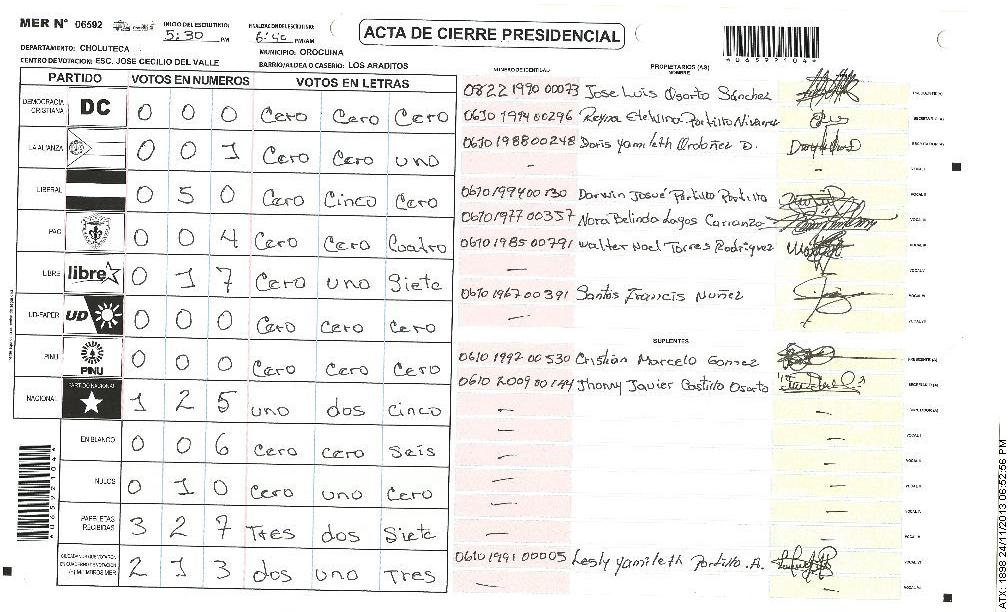 MER N° 06592
INICIO DEL ESCRUTINIO:
5:30 PM
FINALIZACION DEL ESCRUTINIO:
PM/AM
ACTA DE CIERRE PRESIDENCIAL
*06592104*
DEPARTAMENTO: CHOLUTECA
MUNICIPIO: OROCUINA
CENTRO DE VOTACION: ESC. JOSE CECILIO DEL VALLE
BARRIO/ALDEA O CASERIO: LOS ARADITOS
PARTIDO VOTOS EN NUMEROS VOTOS EN LETRAS
DEMOCRACIA CRISTIANA DC 0 0 0 Cero Cero Cero
LA ALIANZA 0 0 1 Cero Cero uno
LIBERAL 0 5 0 Cero Cinco Cero
PAC 0 0 4 Cero Cero Cuatro
LIBRE libre 0 1 7 Cero uno Siete
UD-FAPER UD 0 0 0 Cero Cero Cero
PINU PINU 0 0 0 Cero Cero Cero
NACIONAL PARTIDO NACIONAL 1 2 5 uno dos cinco
EN BLANCO 0 0 6 Cero cero seis
NULOS 0 1 0 Cero uno Cero
PAPELETAS RECIBIDAS 3 2 7 Tres dos Siete
2 1 3 dos uno Tres
*06592104*
NUMERO DE IDENTIDAD
PROPIETARIOS (AS)
NOMBRE
0822 1990 00073 Jose Luis Osorto Sánchez
0610 1994 00296 Reyna Etelvina Portillo
0610 1988 00248 Doris Yamileth Ordoñez D.
—
0610 1994 00130 Darwin Josué Portillo Portillo
0610 1977 00357 Nora Belinda Lagos Carranza
0610 1985 00791 Walter Noel Torres Rodriguez
—
0610 1967 00391 Santos Francis Nuñez
—
SUPLENTES
0610 1992 00530 Cristian Marcelo Gomez
0610 2009 00144 Jhonny Javier Castillo Osorto
—
—
—
—
—
—
0610 1991 00005 Lesly Yamileth Portillo .A.
—
ATX: 1898 24/11/2013 06:52:56 PM